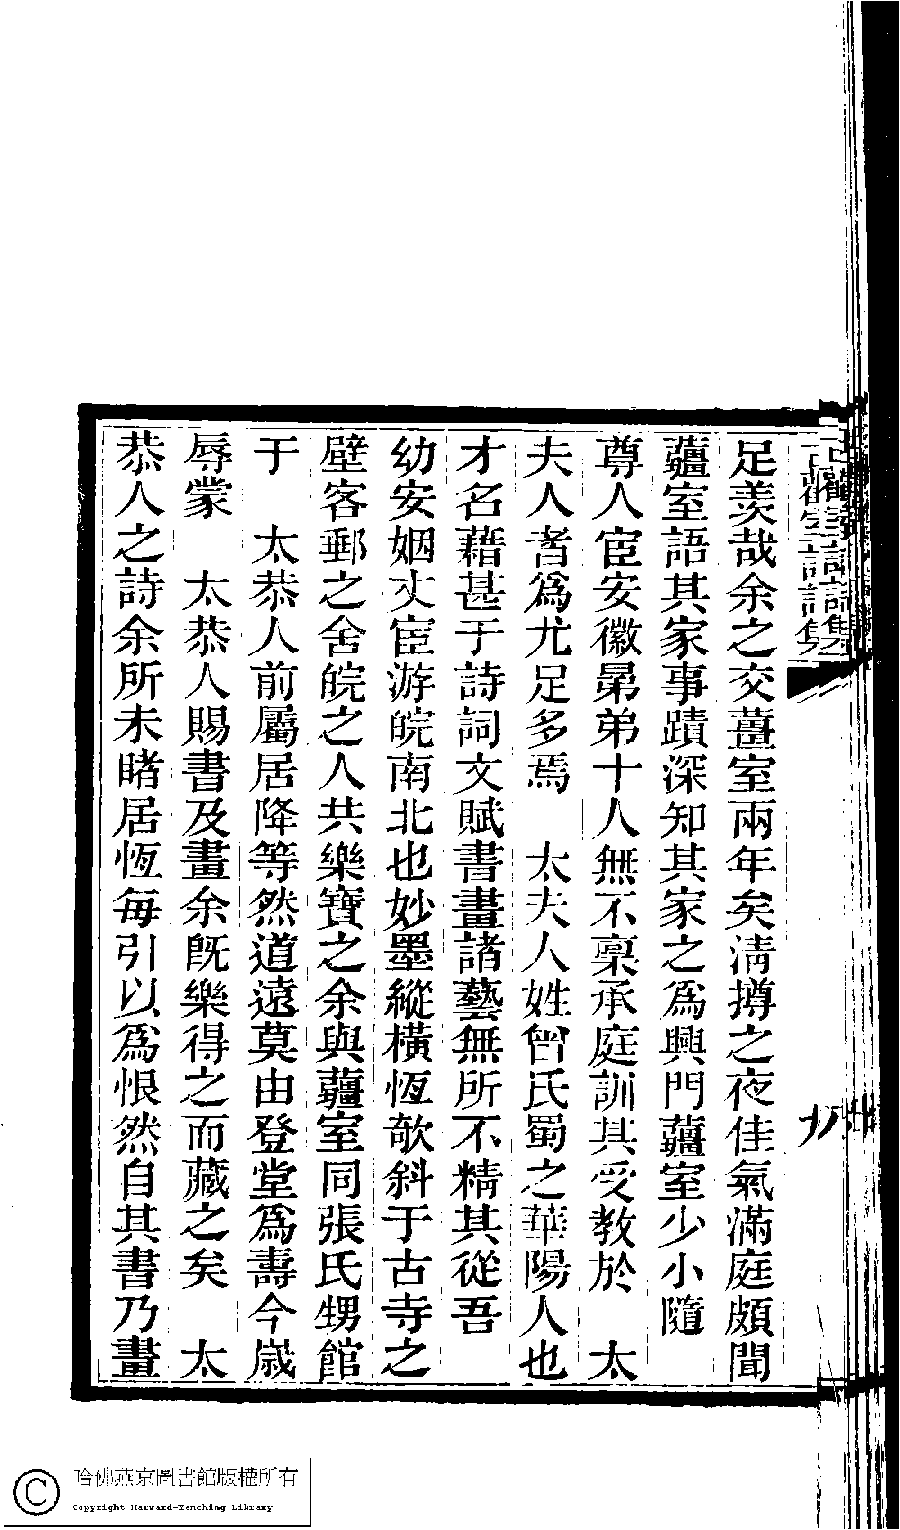 古歡室詩詞集
足羨哉余之交薑室兩年矣淸撙之夜佳氣滿庭頗聞
薑室語其家事蹟深知其家之爲興門薑室少小隨
尊人宦安徽晜弟十人無不稟承庭訓其受教於　太
夫人者爲尤足多焉　太夫人姓曾氏蜀之華陽人也
才名藉甚于詩詞文賦書畫諸藝無所不精其從吾
幼安姻丈宦游皖南北也妙墨縱橫恆欹斜于古寺之
壁客郵之舍皖之人共樂寶之余與薑室同張氏甥館
于　太恭人前屬居降等然道遠莫由登堂爲壽今嵗
辱蒙　太恭人賜書及畫余旣樂得之而藏之矣　太
恭人之詩余所未睹居恆每引以爲恨然自其書乃畫
哈佛燕京圖書館版權所有
Copyright Harvard-Yenching Library